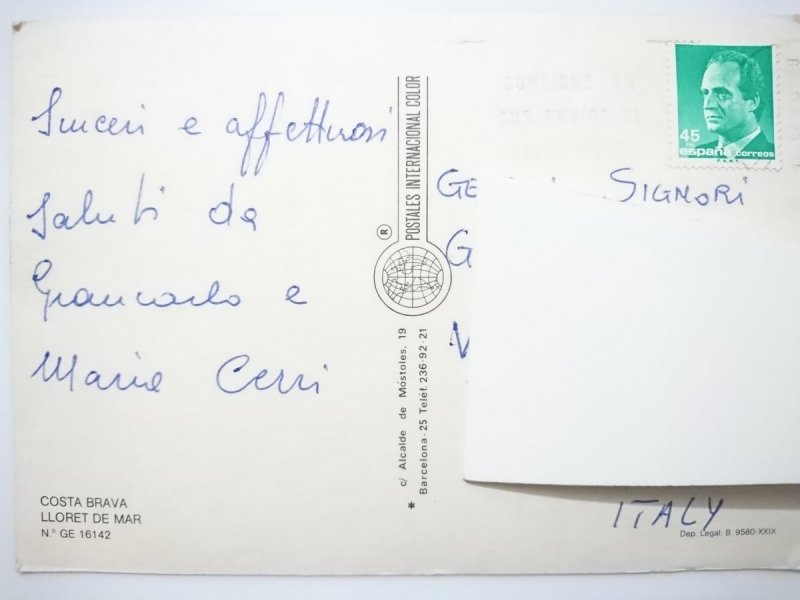 Sinceri e affettuosi
Saluti da
Giancarlo e
Maria Cerri
COSTA BRAVA
LLORET DE MAR
N.° GE 16142
POSTALES INTERNACIONAL COLOR
®
c/ Alcalde de Móstoles, 19
Barcelona-25 Teléf. 236-92 21
*
45
españa correos
SIGNORI
ITALY
Dep. Legal: B 9580-XXIX